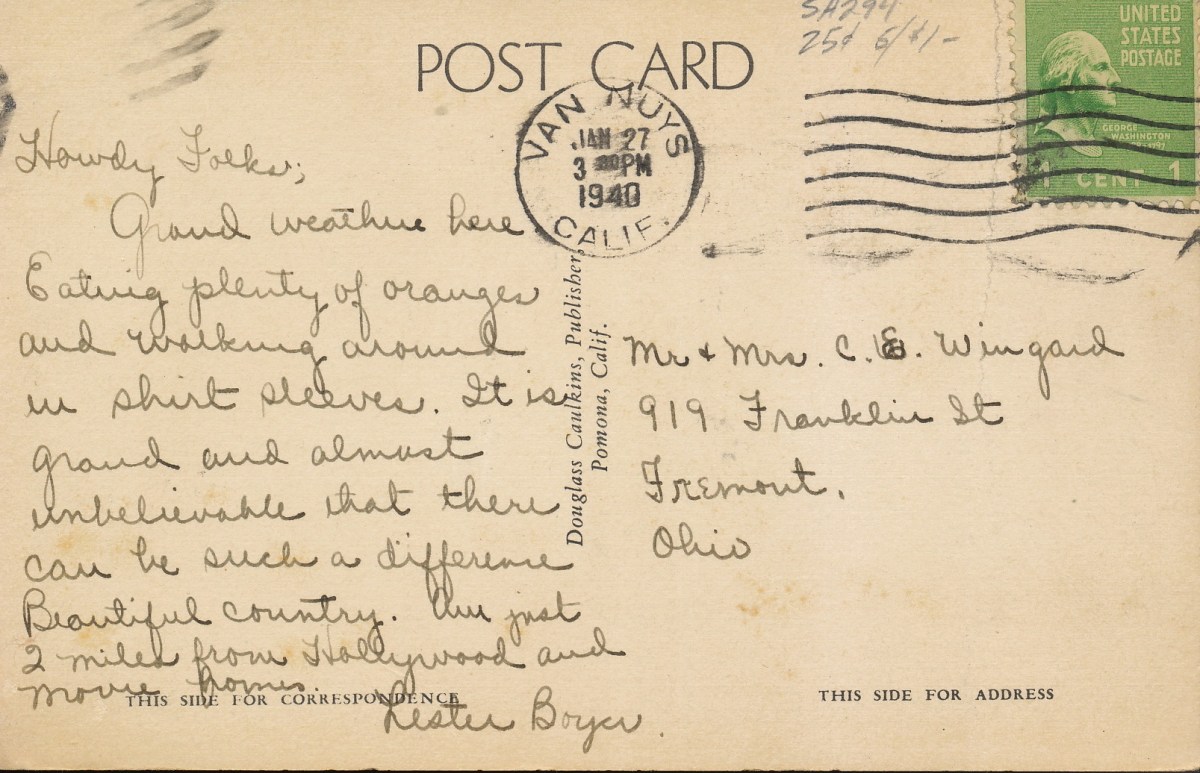 SA294
25¢ 6/$1-
UNITED
STATES
POSTAGE
GEORGE
WASHINGTON
1 CENT 1
POST CARD
VAN NUYS
JAN 27
3 PM
1940
CALIF.
Howdy Folks;
Grand weather here
Eating plenty of oranges
and walking around
in shirt sleeves. It is
grand and almost
unbelievable that there
can be such a difference
Beautiful country. Am just
2 miles from Hollywood and
movie homes.
Lester Boyer.
THIS SIDE FOR CORRESPONDENCE
Douglass Caulkins, Publisher,
Pomona, Calif.
Mr & Mrs. C. E. Wingard
919 Franklin St
Fremont,
Ohio
THIS SIDE FOR ADDRESS